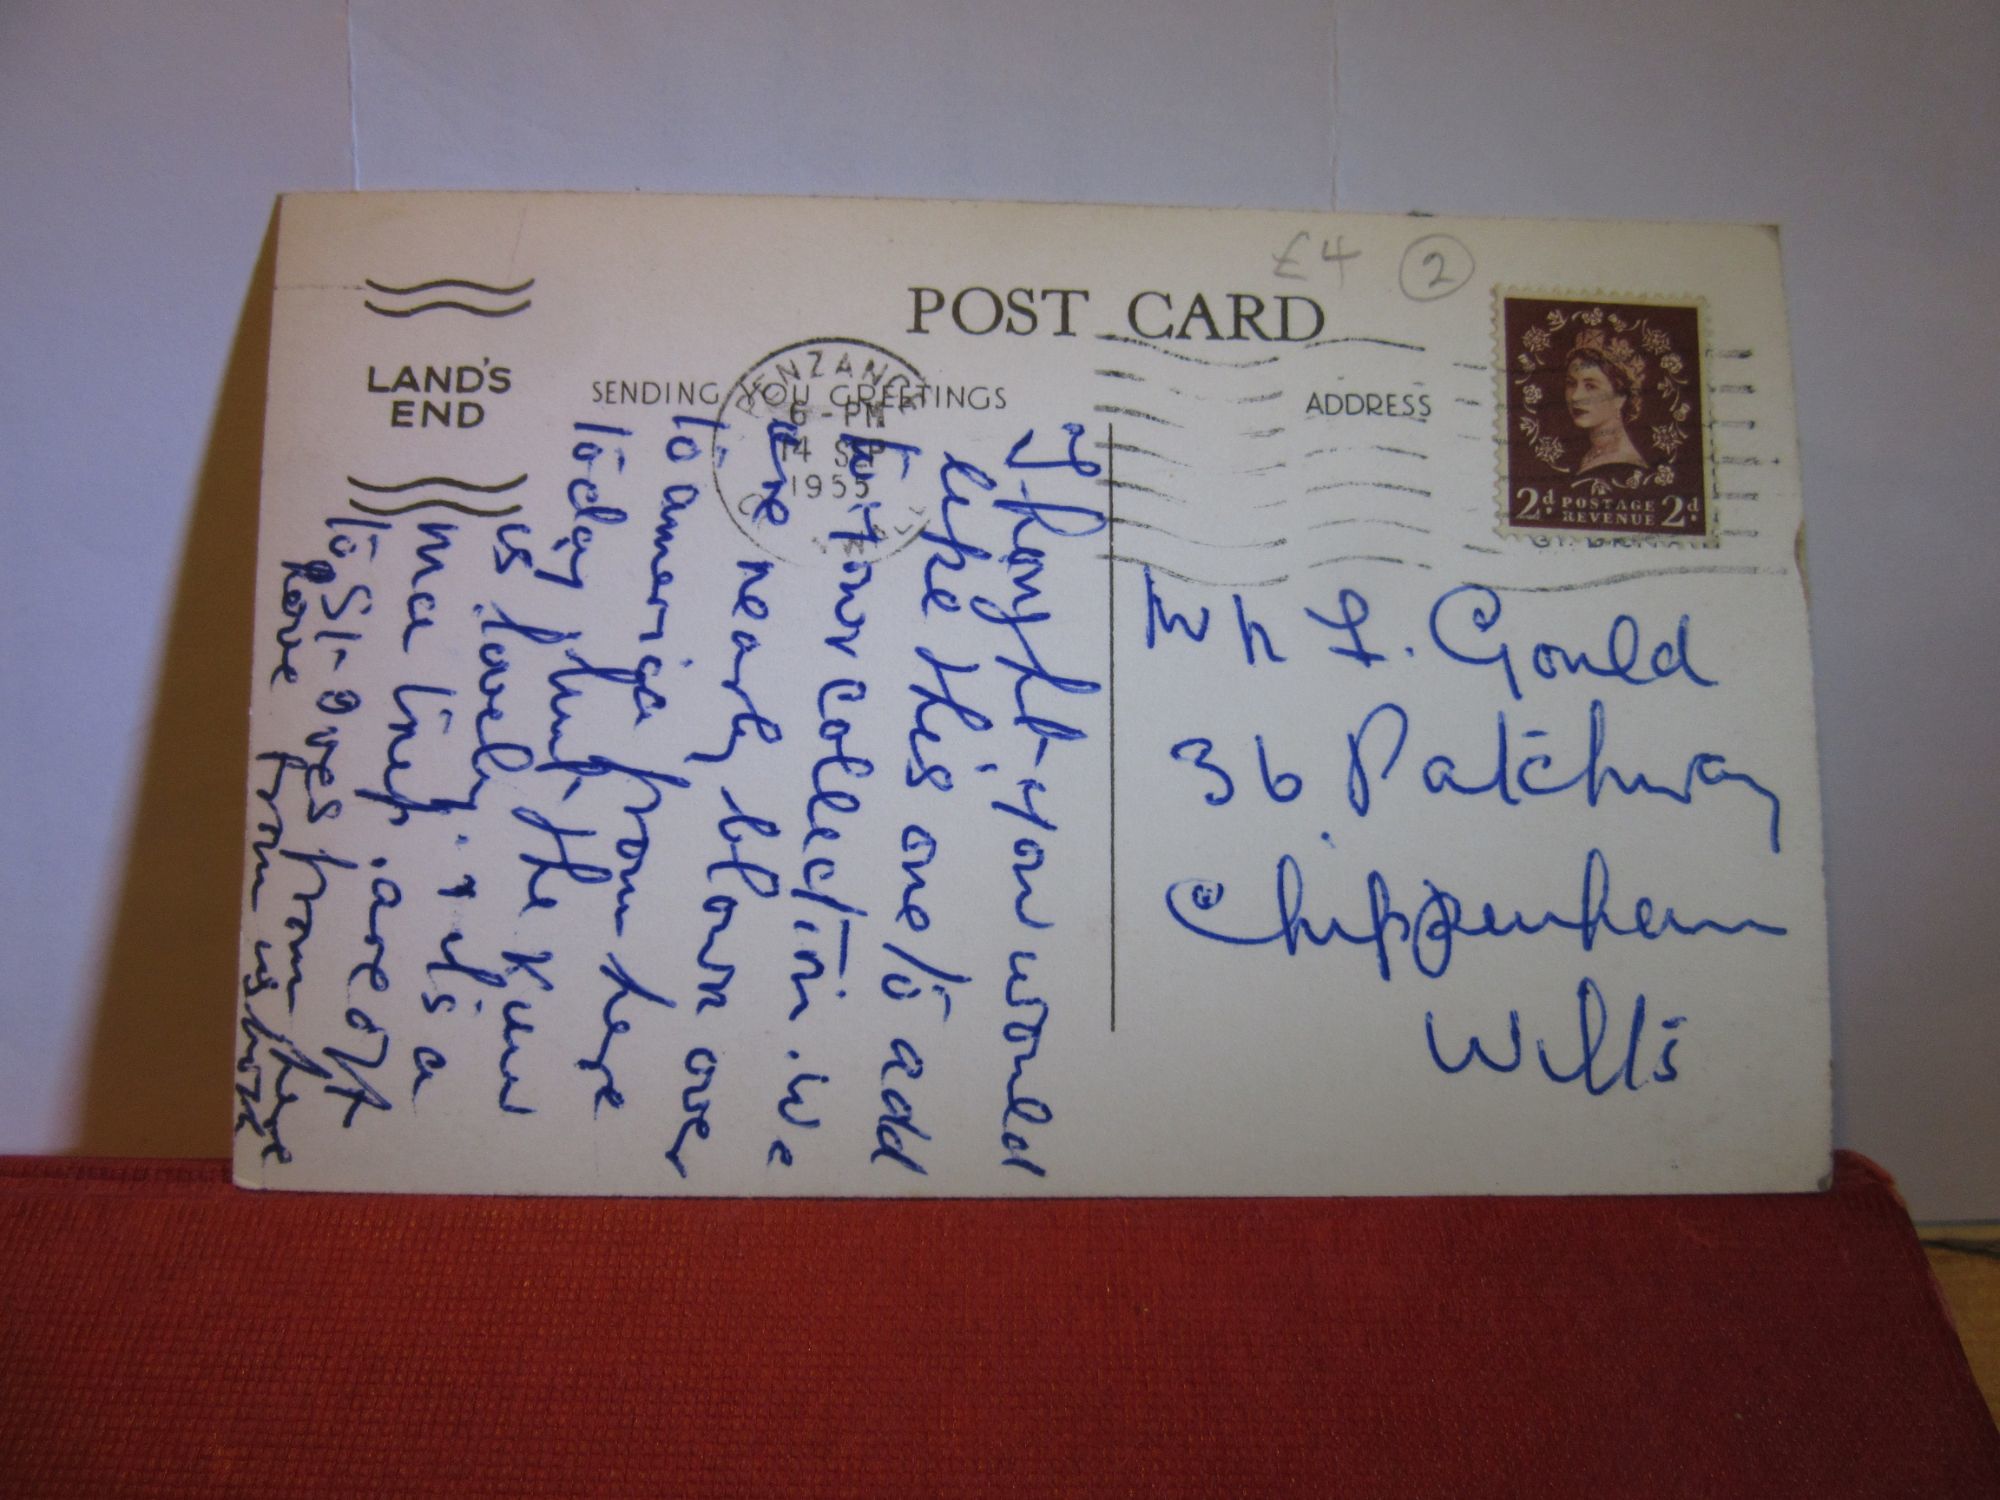 £4 2
POST CARD
LAND'S
END
SENDING YOU GREETINGS
ADDRESS
PENZANCE
6 - PM
14 SEP
1955
2d POSTAGE 2d
REVENUE
I thought you would
like this one to add
to your collection. We
are nearly blown over
to america from here
today but the view
is lovely. its a
nice trip. are off
to St-Ives from here
Love from us both
F. Gould
36 Patchway
Chippenham
Wilts